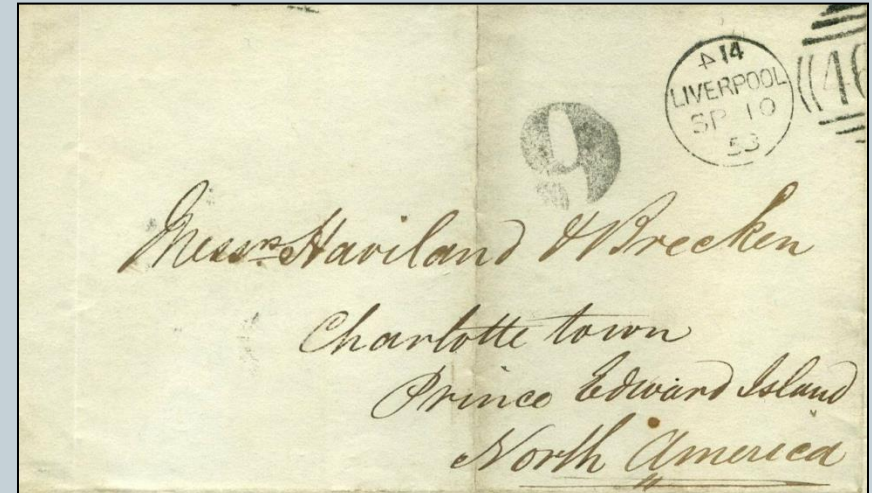 14
LIVERPOOL
SP 10
53
466
9
Messrs. Haviland & Brecken
Charlotte town
Prince Edward Island
North America